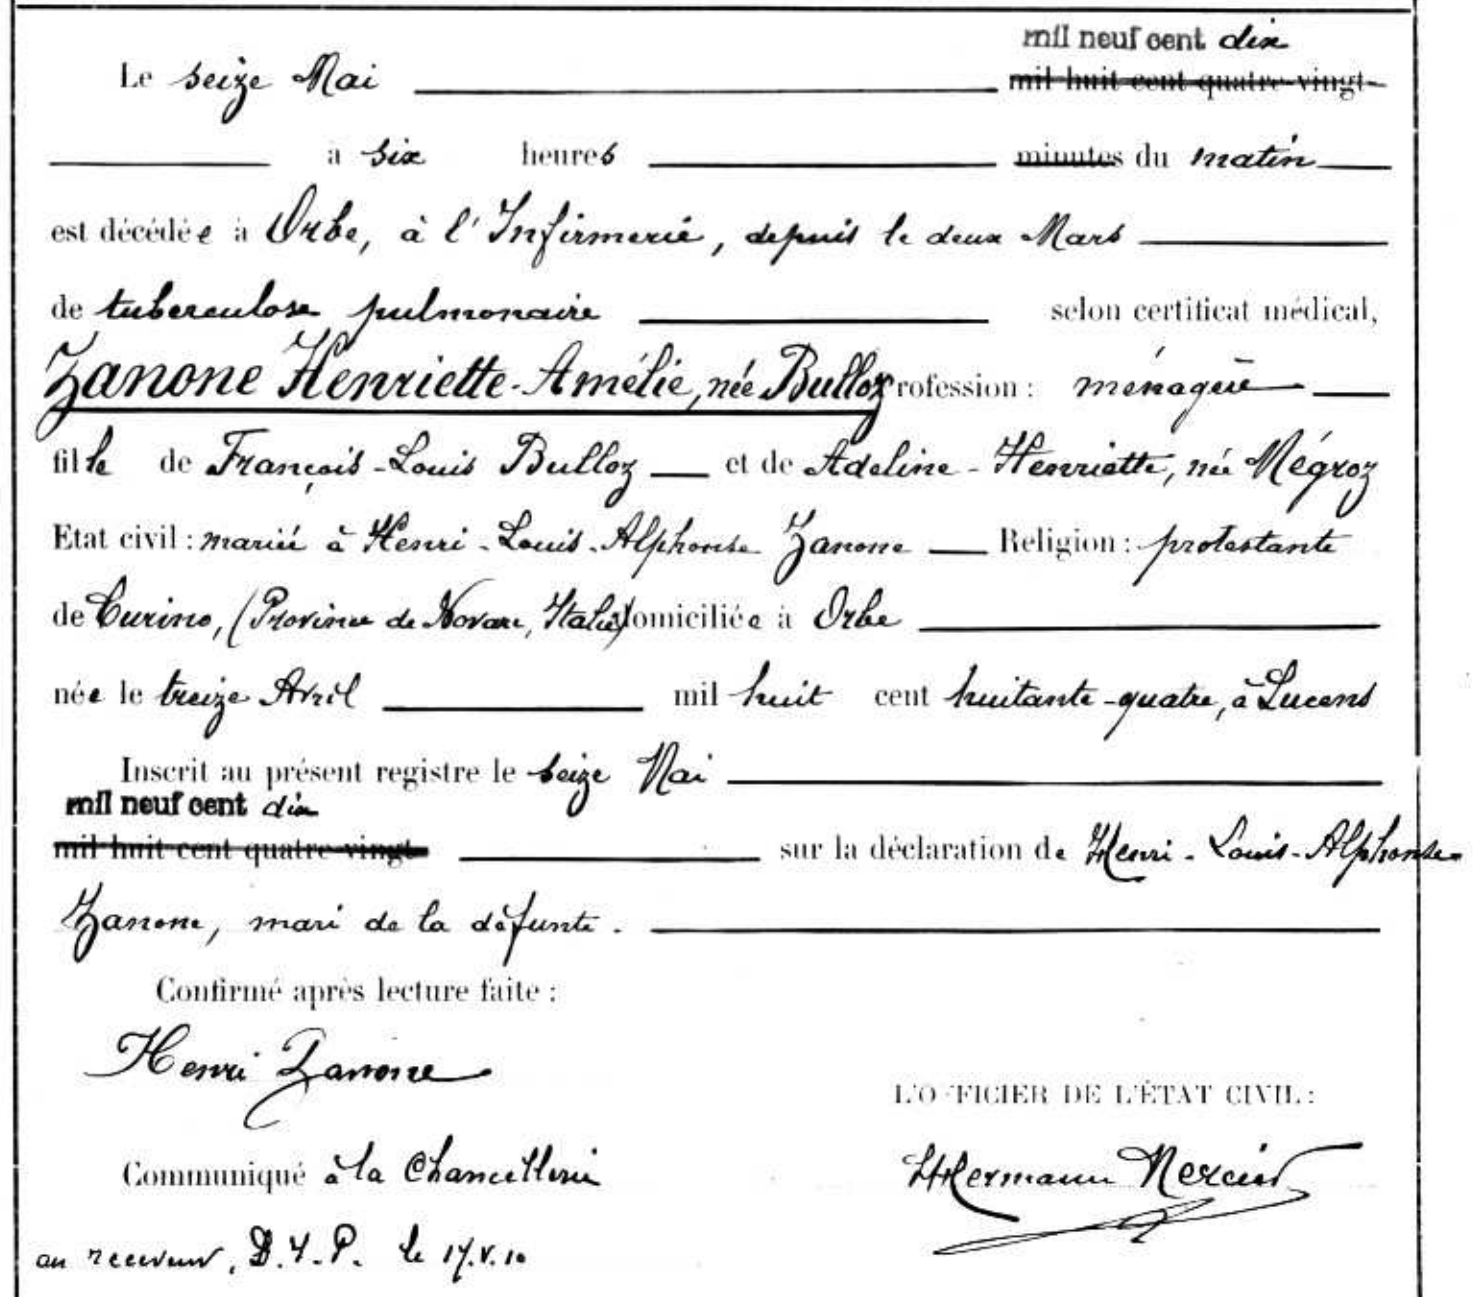 mil neuf cent dix
Le seize Mai mil huit cent quatre-vingt-
à six heures minutes du matin
est décédée à Orbe, à l'Infirmerie, depuis le deux Mars
de tuberculose pulmonaire selon certificat médical,
Zanone Henriette-Amélie, née Bulloz rofession : ménagère
fille de François-Louis Bulloz et de Adeline-Henriette, née Mégroz
Etat civil : mariée à Henri-Louis-Alphonse Zanone Religion : protestante
de Curino, (Province de Novare, Italie) domiciliée à Orbe
née le treize Avril mil huit cent huitante-quatre, à Lucens
Inscrit au présent registre le seize Mai
mil neuf cent dix
mil huit cent quatre-vingt- sur la déclaration de Henri-Louis-Alphonse
Zanone, mari de la défunte.
Confirmé après lecture faite :
Henri Zanone
L'OFFICIER DE L'ÉTAT CIVIL :
Communiqué à la Chancellerie
Hermann
au receveur, le 17.V.10